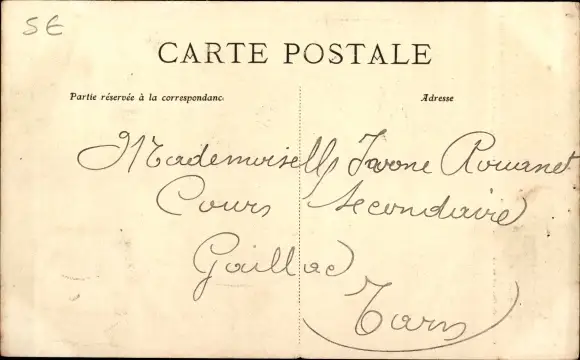 5€
CARTE POSTALE
Partie réservée à la correspondanc.
Adresse
Mademoiselle Ivone Rouanet
Cours Secondaire
Gaillac
Tarn